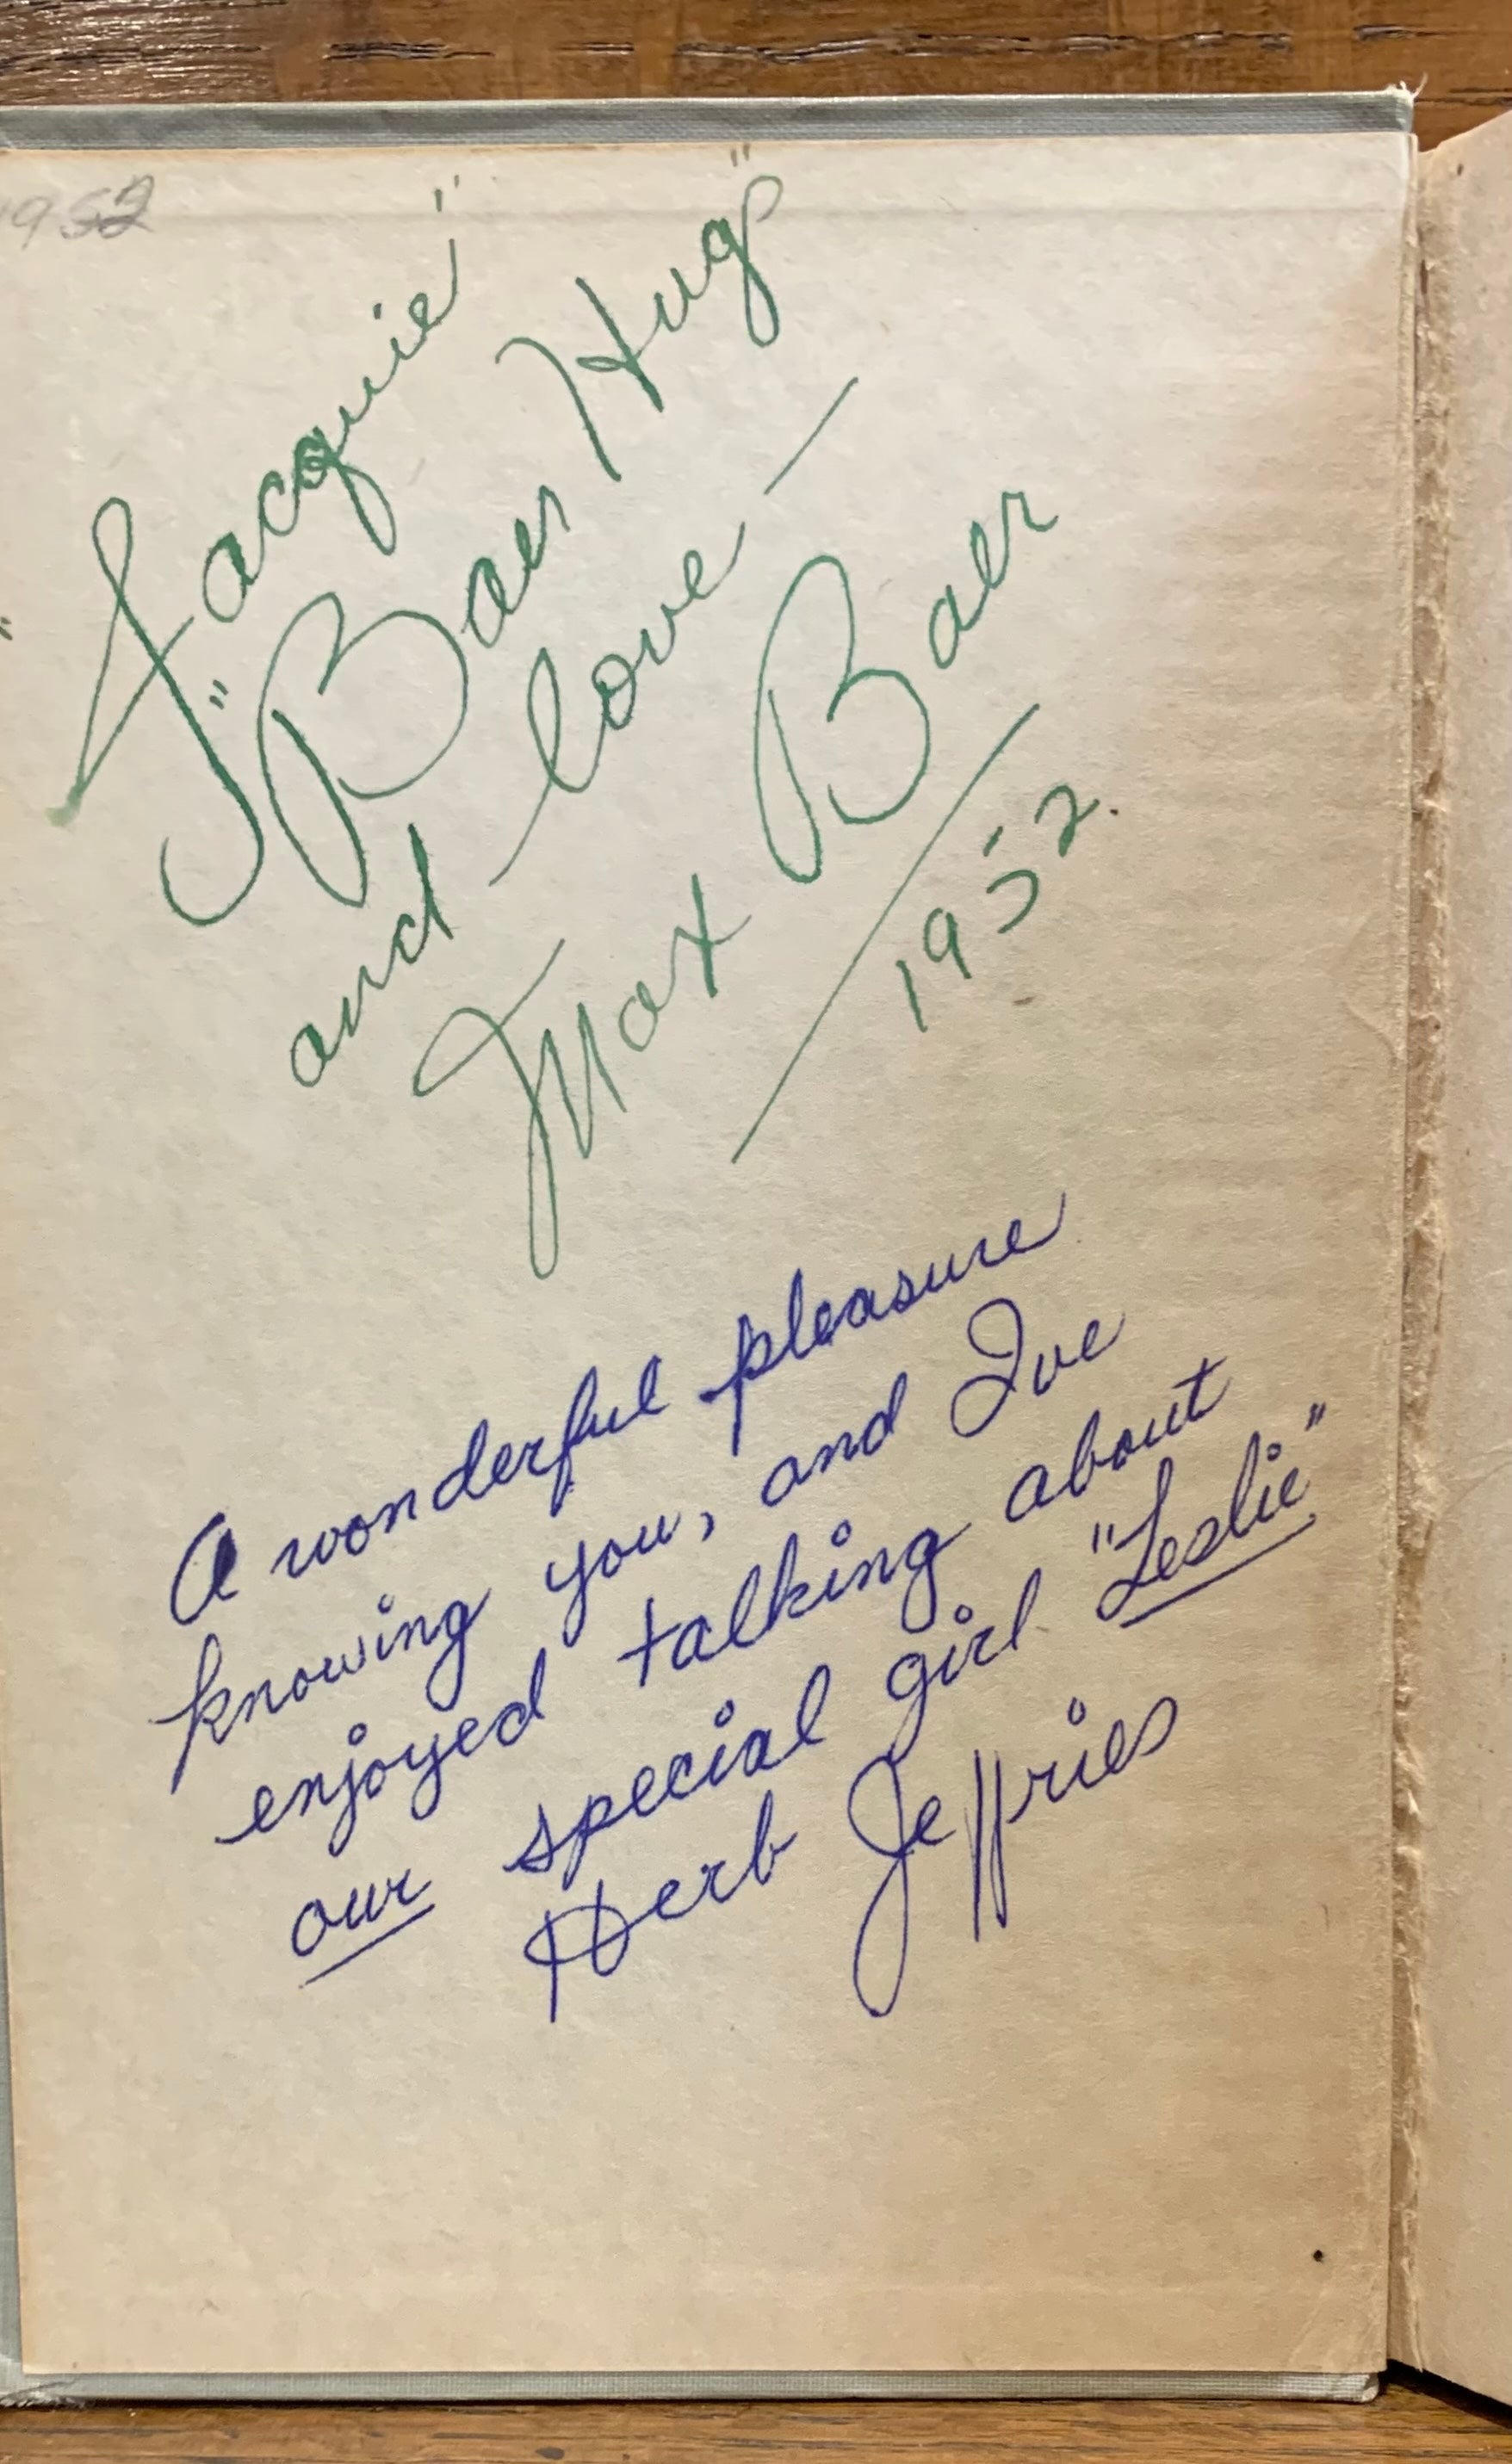 1952
"Jacquie"
"Baer Hug"
and love —
Max Baer
1952.
A wonderful pleasure
knowing you, and I've
enjoyed talking about
our special girl "Leslie"
Herb Jeffries